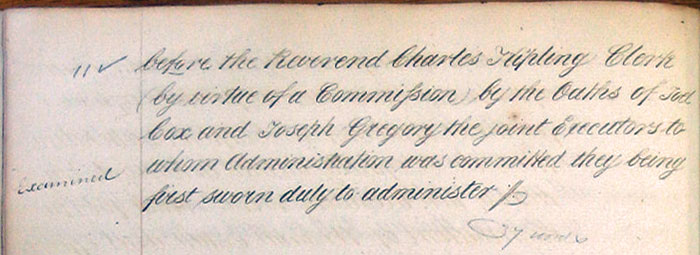 11 ✓ before the Reverend Charles Kipling Clerk
(by virtue of a Commission) by the Oaths of Joel
Cox and Joseph Gregory the joint Executors to
whom Administration was committed they being
Examined
first sworn duly to administer